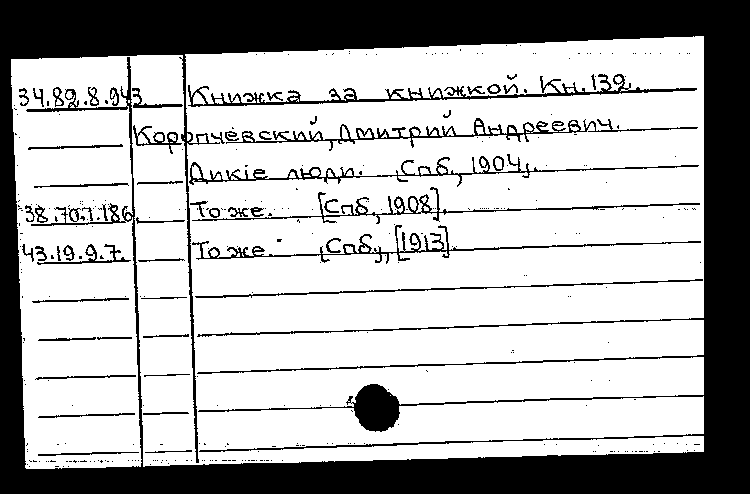 34.82.8.943. Книжка за книжкой. Кн. 132.
Коропчевский, Дмитрий Андреевич.
Дикіе люди. [Спб., 1904].
38.70.1.186. То же. [Спб., 1908].
43.19.9.7. То же. [Спб.], [1913].